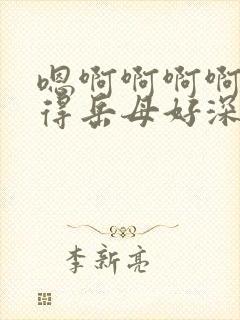 嗯啊啊啊啊
得岳母好深
李新亮